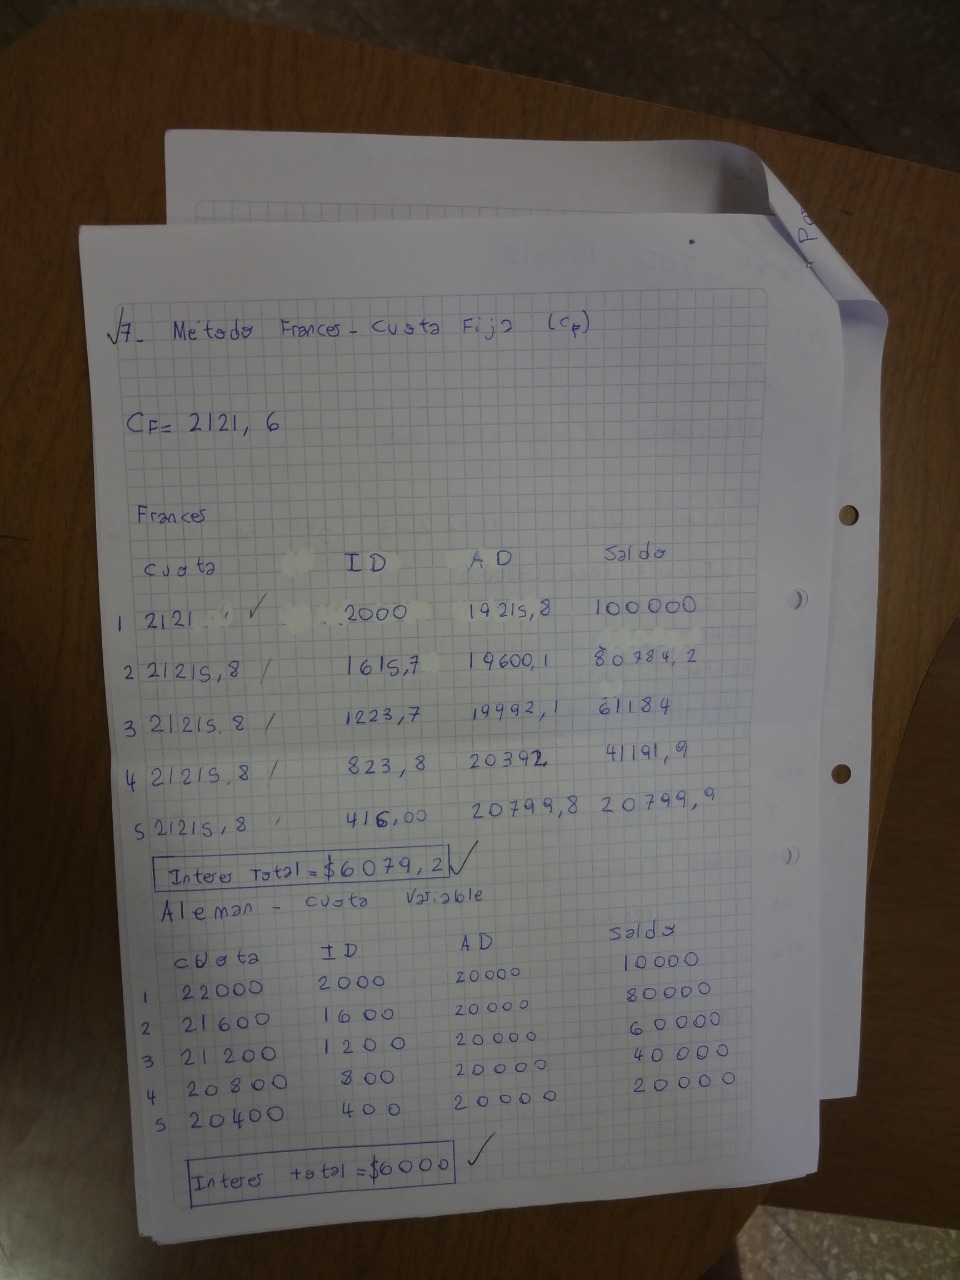 √7- Método Frances - Cuota Fija (CF)
CF= 2121, 6
Frances
Cuota ID AD Saldo
1 2121 ✓ 2000 19215,8 100000
2 21215,8 / 1615,7 19600,1 80784,2
3 21215,8 / 1223,7 19992,1 61184
4 21215,8 / 823,8 20392 41191,9
5 21215,8 / 416,00 20799,8 20799,9
Interes Total = $6079,2 ✓
Aleman - Cuota Variable
Cuota ID AD Saldo
1 22000 2000 20000 10000
2 21600 1600 20000 80000
3 21200 1200 20000 60000
4 20800 800 20000 40000
5 20400 400 20000 20000
Interes total = $6000 ✓